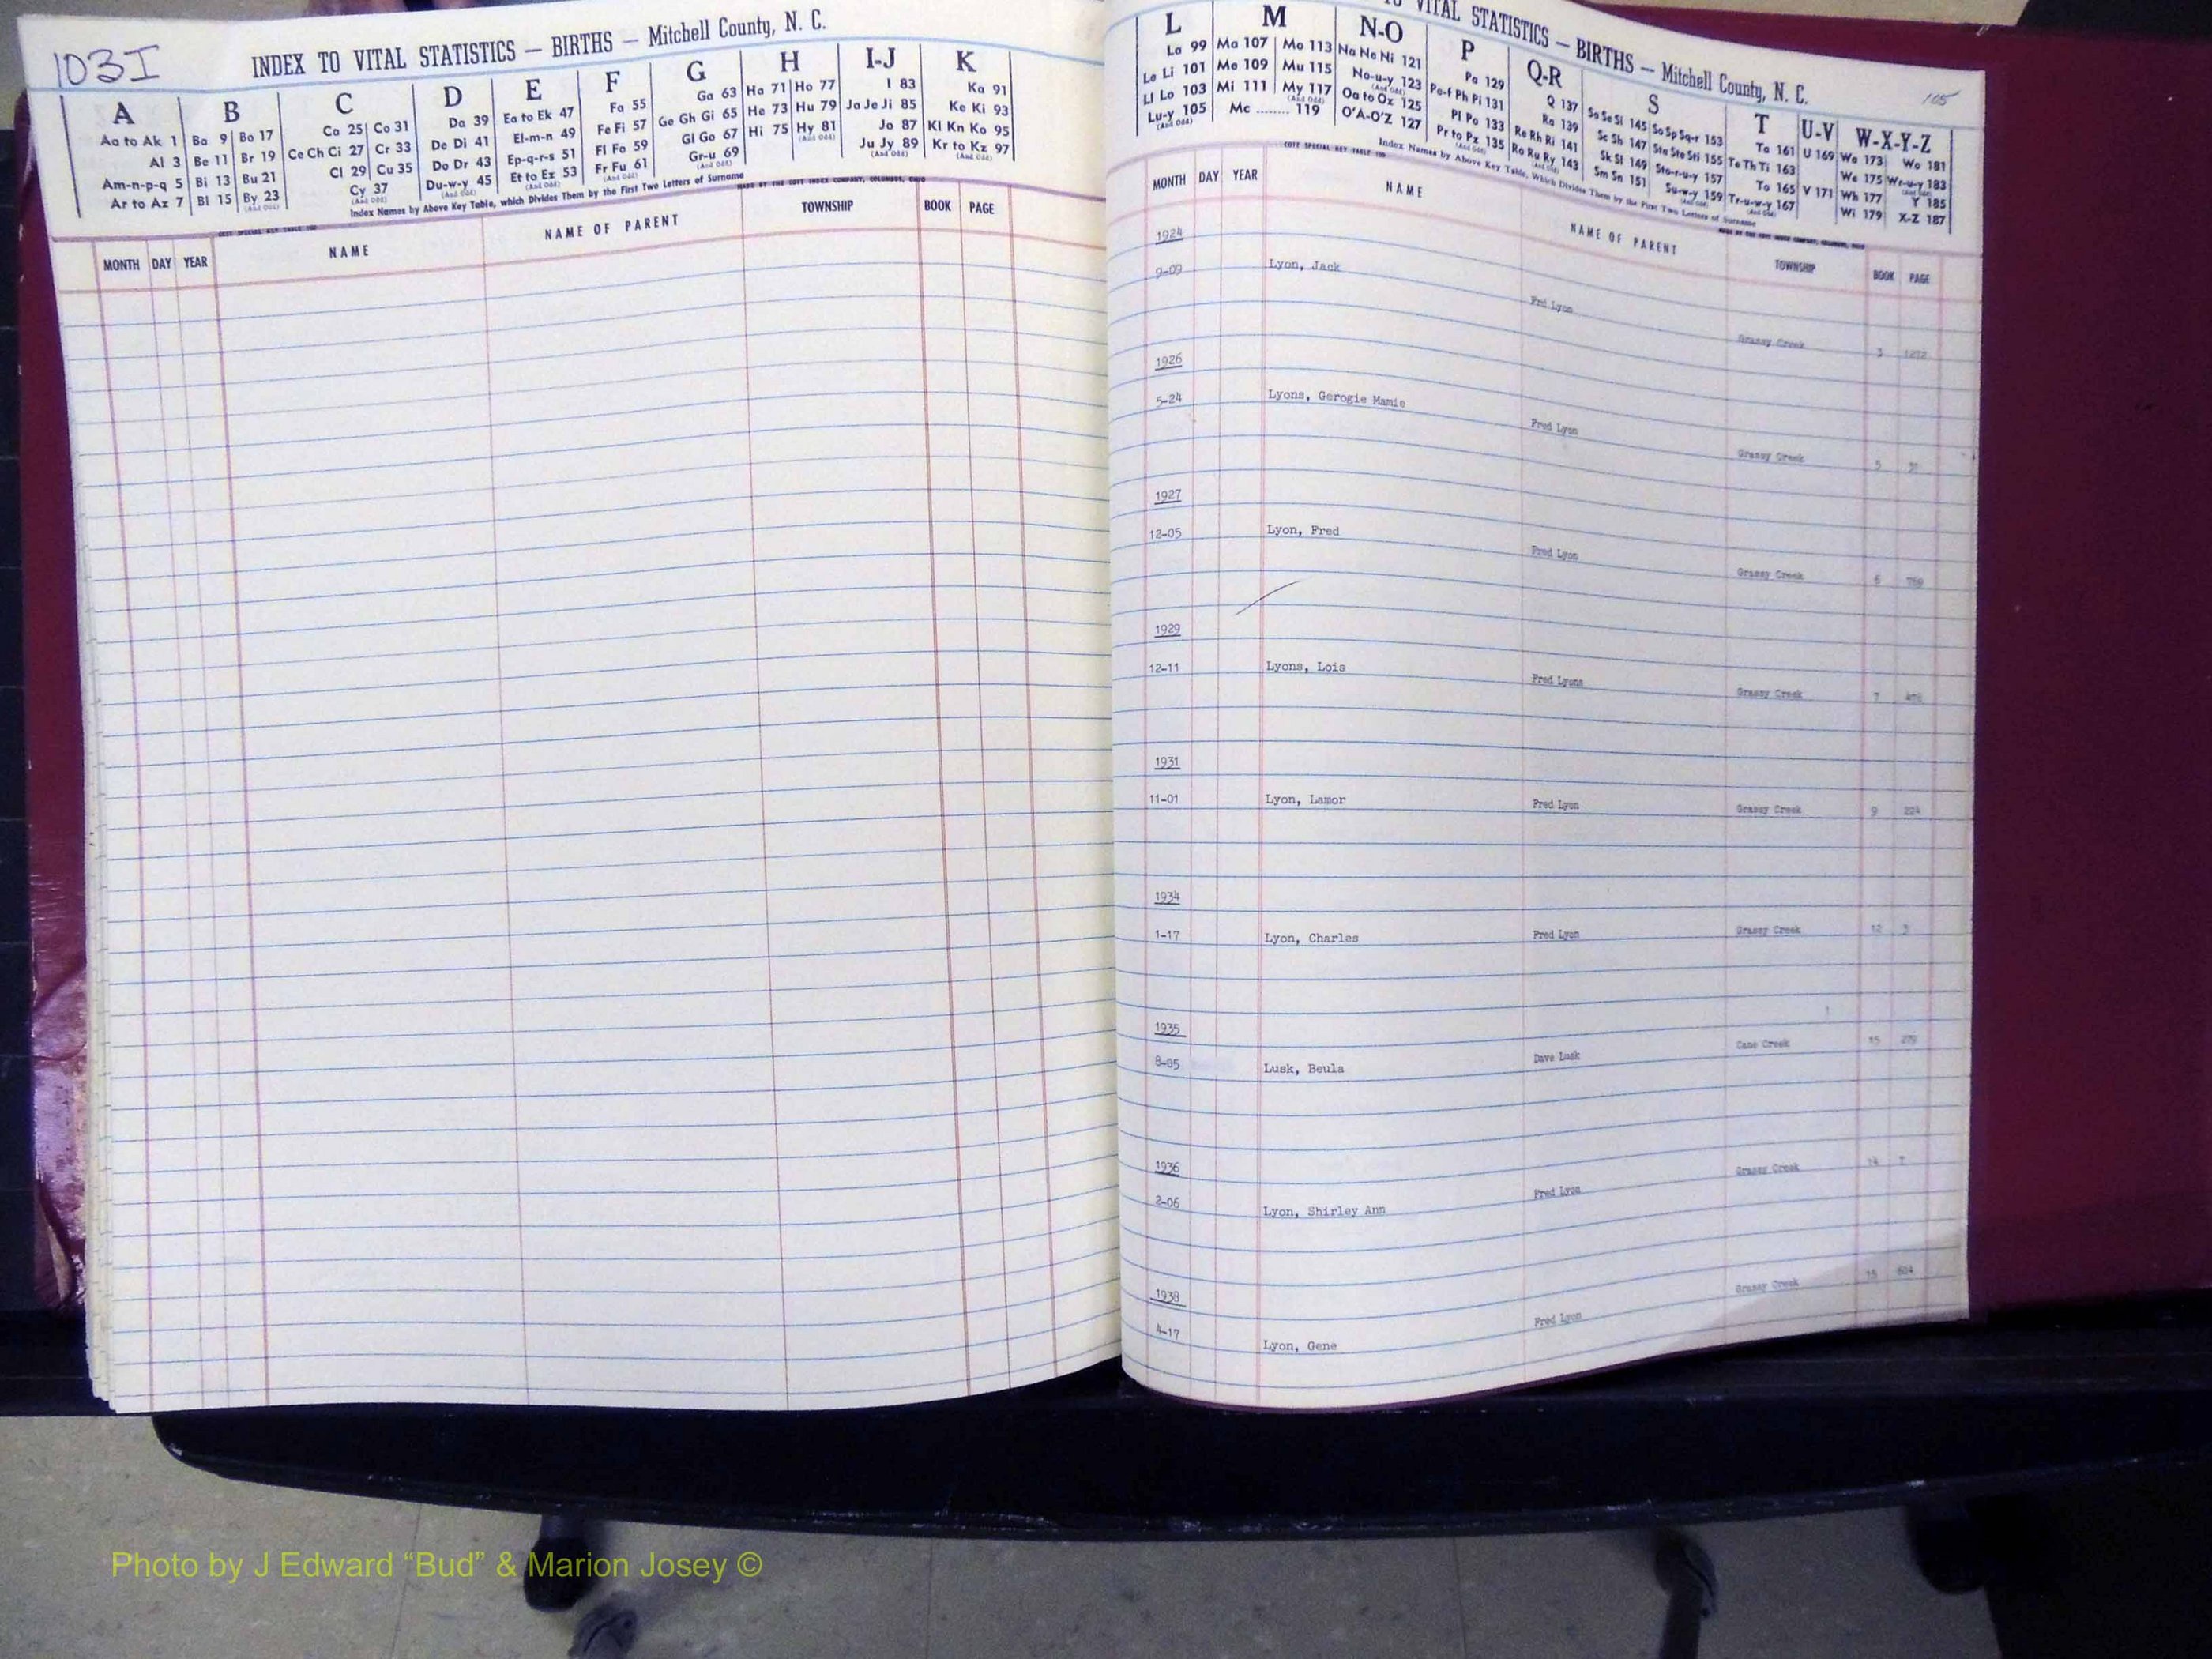 103I
INDEX TO VITAL STATISTICS — BIRTHS — Mitchell County, N. C.
A B C D E F G H I-J K
Aa to Ak 1 Ba 9 Bo 17 Ca 25 Co 31 Da 39 Ea to Ek 47 Fa 55 Ga 63 Ha 71 Ho 77 I 83 Ka 91
Al 3 Be 11 Br 19 Ce Ch Ci 27 Cr 33 De Di 41 El-m-n 49 Fe Fi 57 Ge Gh Gi 65 He 73 Hu 79 Ja Je Ji 85 Ke Ki 93
Am-n-p-q 5 Bi 13 Bu 21 Cl 29 Cu 35 Do Dr 43 Ep-q-r-s 51 Fl Fo 59 Gl Go 67 Hi 75 Hy 81 (And Odd) Jo 87 Kl Kn Ko 95
Ar to Az 7 Bl 15 By 23 (And Odd) Cy 37 (And Odd) Du-w-y 45 (And Odd) Et to Ez 53 (And Odd) Fr Fu 61 (And Odd) Gr-u 69 (And Odd) Ju Jy 89 (And Odd) Kr to Kz 97 (And Odd)
Index Names by Above Key Table, which Divides Them by the First Two Letters of Surname
COTT SPECIAL KEY TABLE 100 MADE BY THE COTT INDEX COMPANY, COLUMBUS, OHIO
MONTH DAY YEAR NAME NAME OF PARENT TOWNSHIP BOOK PAGE
TO VITAL STATISTICS — BIRTHS — Mitchell County, N. C.
105
L M N-O P Q-R S T U-V W-X-Y-Z
La 99 Ma 107 Mo 113 Na Ne Ni 121 Pa 129 Q 137 Sa Se Si 145 So Sp Sq-r 153 Ta 161 U 169 Wa 173 Wo 181
Le Li 101 Me 109 Mu 115 No-u-y 123 (And Odd) Pe-f Ph Pi 131 Ra 139 Sc Sh 147 Sta Ste Sti 155 Te Th Ti 163 We 175 Wr-u-y 183
Ll Lo 103 Mi 111 My 117 (And Odd) Oa to Oz 125 Pl Po 133 Re Rh Ri 141 Sk Sl 149 Sto-r-u-y 157 To 165 V 171 Wh 177 Y 185
Lu-y 105 (And Odd) Mc ........ 119 O'A-O'Z 127 Pr to Pz 135 (And Odd) Ro Ru Ry 143 (And Odd) Sm Sn 151 Su-w-y 159 Tr-u-w-y 167 (And Odd) Wi 179 X-Z 187
Index Names by Above Key Table, Which Divides Them by the First Two Letters of Surname
COTT SPECIAL KEY TABLE 100 MADE BY THE COTT INDEX COMPANY, COLUMBUS, OHIO
MONTH DAY YEAR NAME NAME OF PARENT TOWNSHIP BOOK PAGE
1924
9-09 Lyon, Jack Frd Lyon Grassy Creek 3
1926
5-24 Lyons, Gerogie Mamie Fred Lyon Grassy Creek 5
1927
12-05 Lyon, Fred Fred Lyon Grassy Creek 6 769
1929
12-11 Lyons, Lois Fred Lyons Grassy Creek 7
1931
11-01 Lyon, Lamor Fred Lyon Grassy Creek 9 224
1934
1-17 Lyon, Charles Fred Lyon Grassy Creek 12 3
1935
8-05 Lusk, Beula Dave Lusk Cane Creek 15 279
1936
2-06 Lyon, Shirley Ann Fred Lyon Grassy Creek 14
1938
4-17 Lyon, Gene Fred Lyon Grassy Creek
Photo by J Edward “Bud” & Marion Josey ©